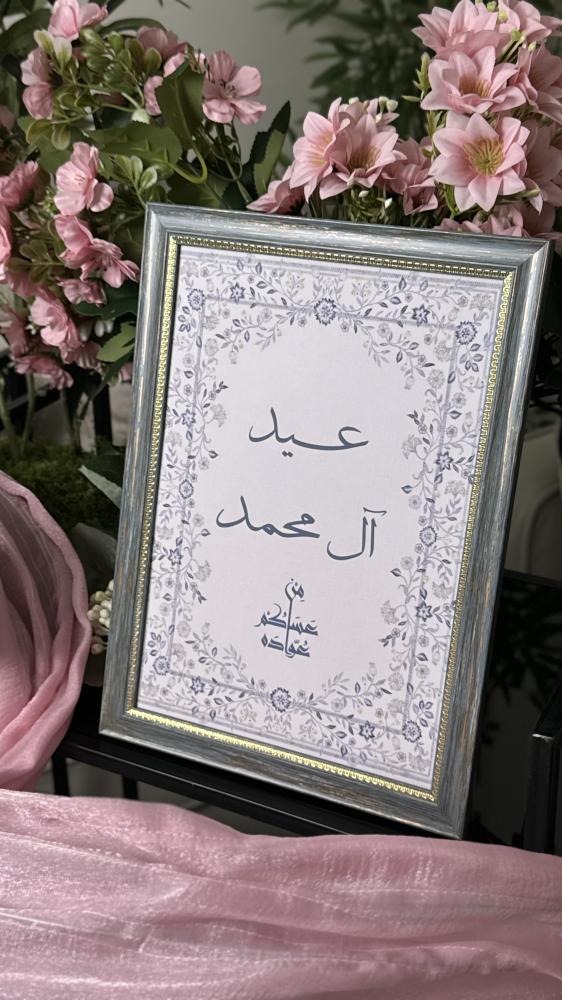 عيد
آل محمد
من
عساكم
عواده